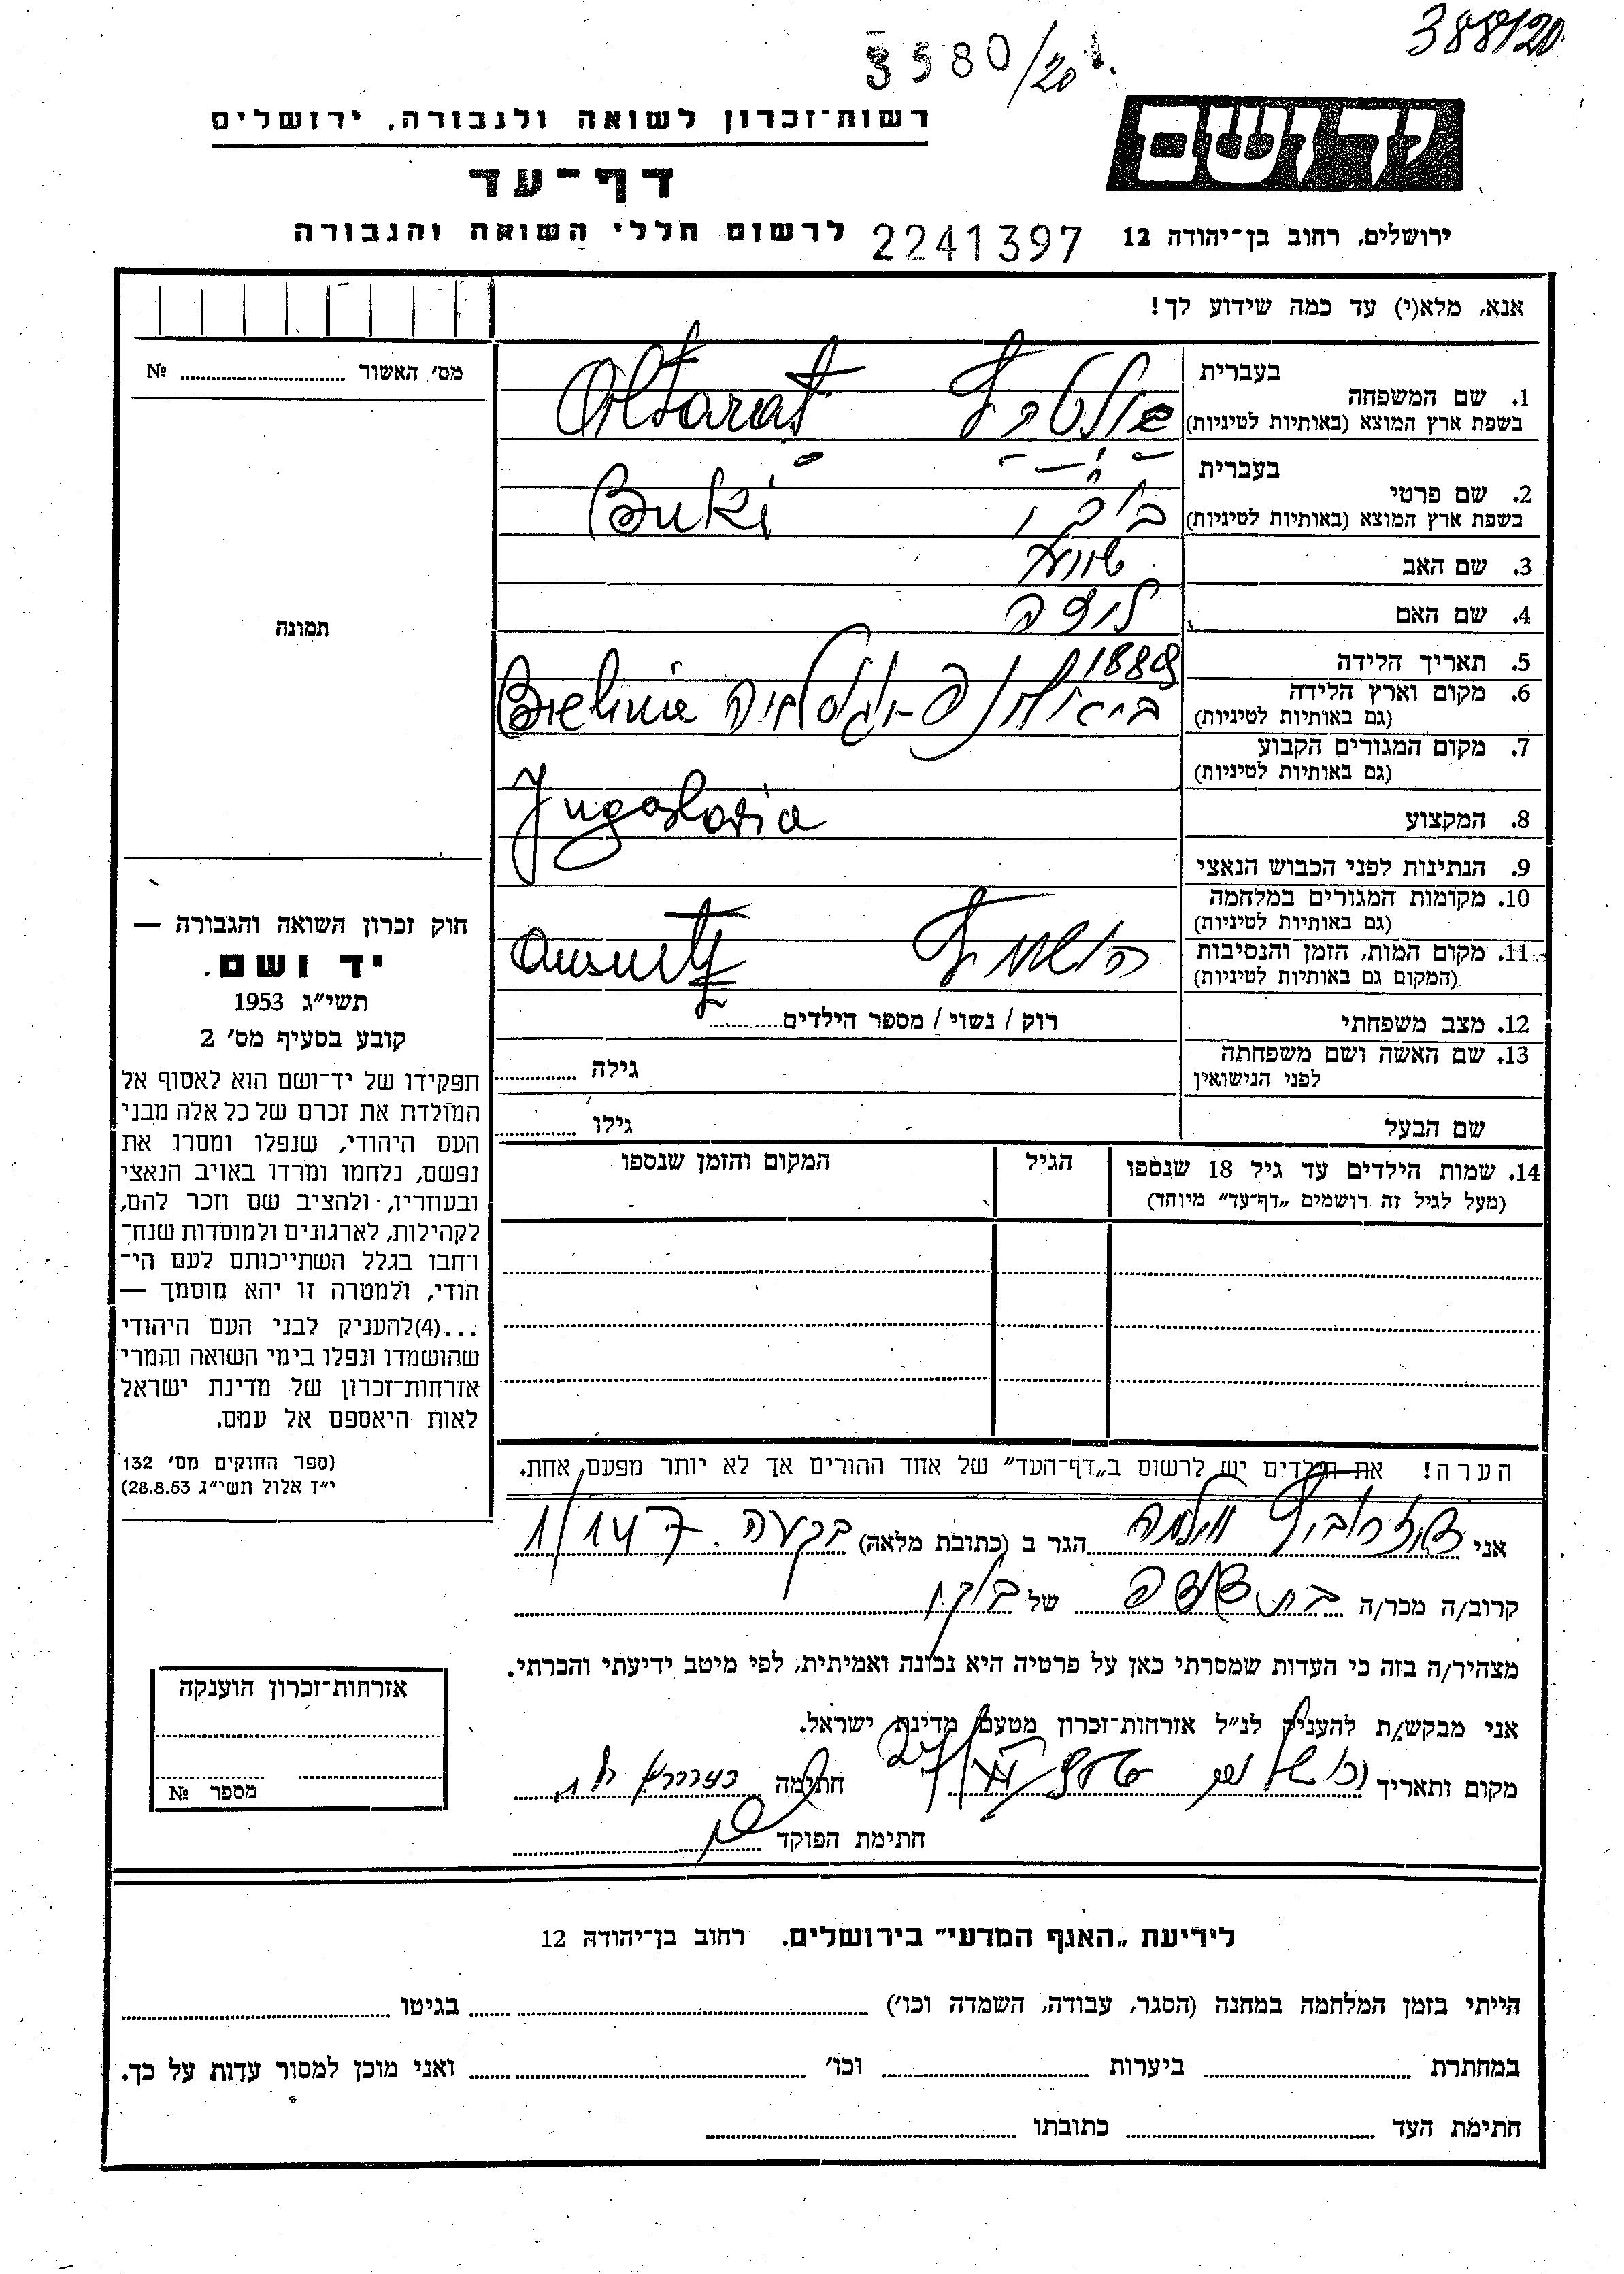 3580/20
388/20
ידושם
רשות־זכרון לשואה ולגבורה, ירושלים
דף־עד
לרשום חללי השואה והגבורה
2241397
ירושלים, רחוב בן־יהודה 12
אנא, מלא(י) עד כמה שידוע לך!
מס׳ האשור № 
תמונה
בעברית
1. שם המשפחה
בשפת ארץ המוצא (באותיות לטיניות)
Altarat
בעברית
2. שם פרטי
בשפת ארץ המוצא (באותיות לטיניות)
בוקי Buki
3. שם האב
4. שם האם
5. תאריך הלידה
6. מקום וארץ הלידה
(גם באותיות לטיניות)
7. מקום המגורים הקבוע
(גם באותיות לטיניות)
Jugoslavia
8. המקצוע
9. הנתינות לפני הכבוש הנאצי
10. מקומות המגורים במלחמה
(גם באותיות לטיניות)
11. מקום המות, הזמן והנסיבות
(המקום גם באותיות לטיניות)
12. מצב משפחתי רוק / נשוי / מספר הילדים
13. שם האשה ושם משפחתה גילה
לפני הנישואין
שם הבעל גילו
14. שמות הילדים עד גיל 18 שנספו הגיל המקום והזמן שנספו
(מעל לגיל זה רושמים „דף־עד״ מיוחד)
הערה! את הילדים יש לרשום ב„דף־העד״ של אחד ההורים אך לא יותר מפעם אחת.
אני הגר ב (כתובת מלאה) בקעה 147 /1
קרוב/ה מכר/ה בת של בוקי
מצהיר/ה בזה כי העדות שמסרתי כאן על פרטיה היא נכונה ואמיתית, לפי מיטב ידיעתי והכרתי.
אני מבקש/ת להעניק לנ״ל אזרחות־זכרון מטעם מדינת ישראל.
מקום ותאריך ירושלים חתימה
חתימת הפוקד
חוק זכרון השואה והגבורה —
יד ושם.
תשי״ג 1953
קובע בסעיף מס׳ 2
תפקידו של יד־ושם הוא לאסוף אל
המולדת את זכרם של כל אלה מבני
העם היהודי, שנפלו ומסרו את
נפשם, נלחמו ומרדו באויב הנאצי
ובעוזריו, ולהציב שם וזכר להם,
לקהילות, לארגונים ולמוסדות שנח־
רחבו בגלל השתייכותם לעם הי־
הודי, ולמטרה זו יהא מוסמך —
...(4)להעניק לבני העם היהודי
שהושמדו ונפלו בימי השואה והמרי
אזרחות־זכרון של מדינת ישראל
לאות היאספם אל עמם.
(ספר החוקים מס׳ 132
י״ז אלול תשי״ג 28.8.53)
אזרחות־זכרון הוענקה
מספר №
לידיעת „האגף המדעי״ בירושלים. רחוב בן־יהודה 12
הייתי בזמן המלחמה במחנה (הסגר, עבודה, השמדה וכו׳) בגיטו
במחתרת ביערות וכו׳ ואני מוכן למסור עדות על כך.
חתימת העד כתובתו